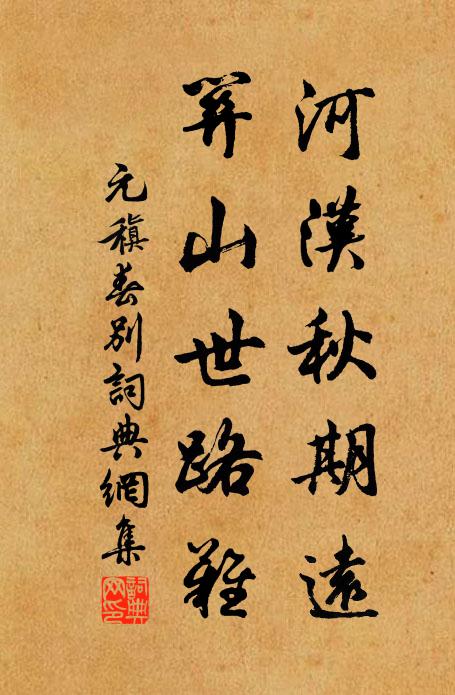 河漢秋期遠
關山世路難
元稹春别詞典網集
詞典
网印